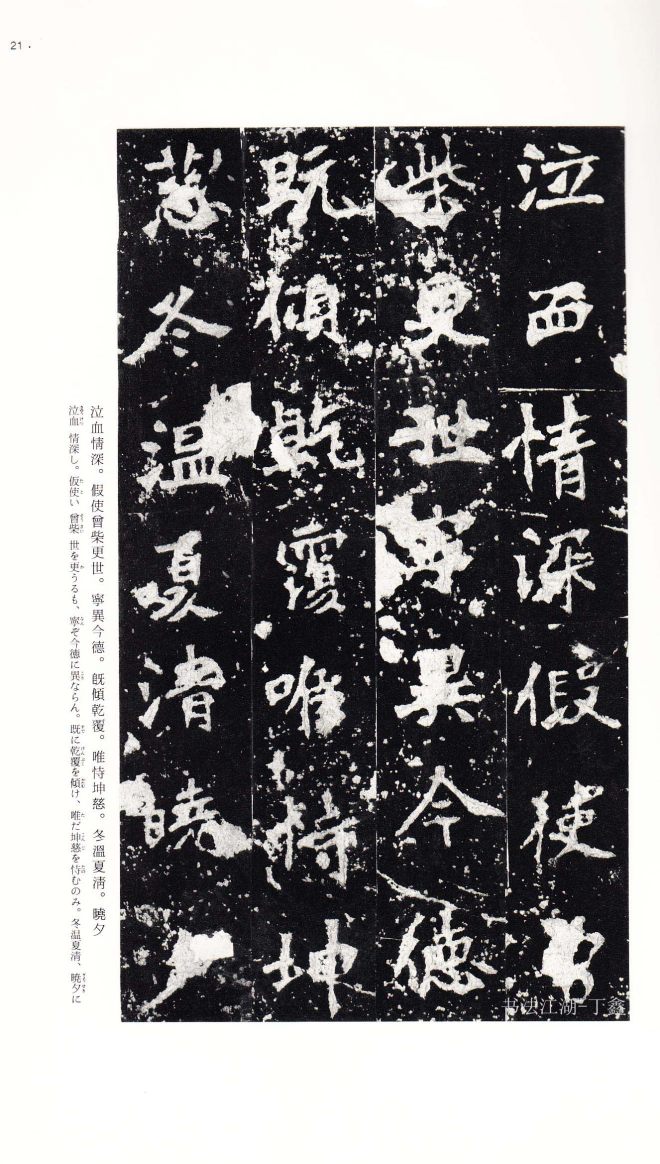 21.
泣血情深假使曾
柴更世寧異今德
既傾乾覆唯恃坤
慈冬温夏凊曉夕
书法江湖-丁鑫
泣血情深。假使曾柴更世。寧異今德。既傾乾覆。唯恃坤慈。冬溫夏凊。曉夕
泣血 情深し。仮使い 曾柴 世を更うるも、寧ぞ今徳に異ならん。既に乾覆を傾け、唯だ坤慈を恃むのみ。冬温夏凊、曉夕に